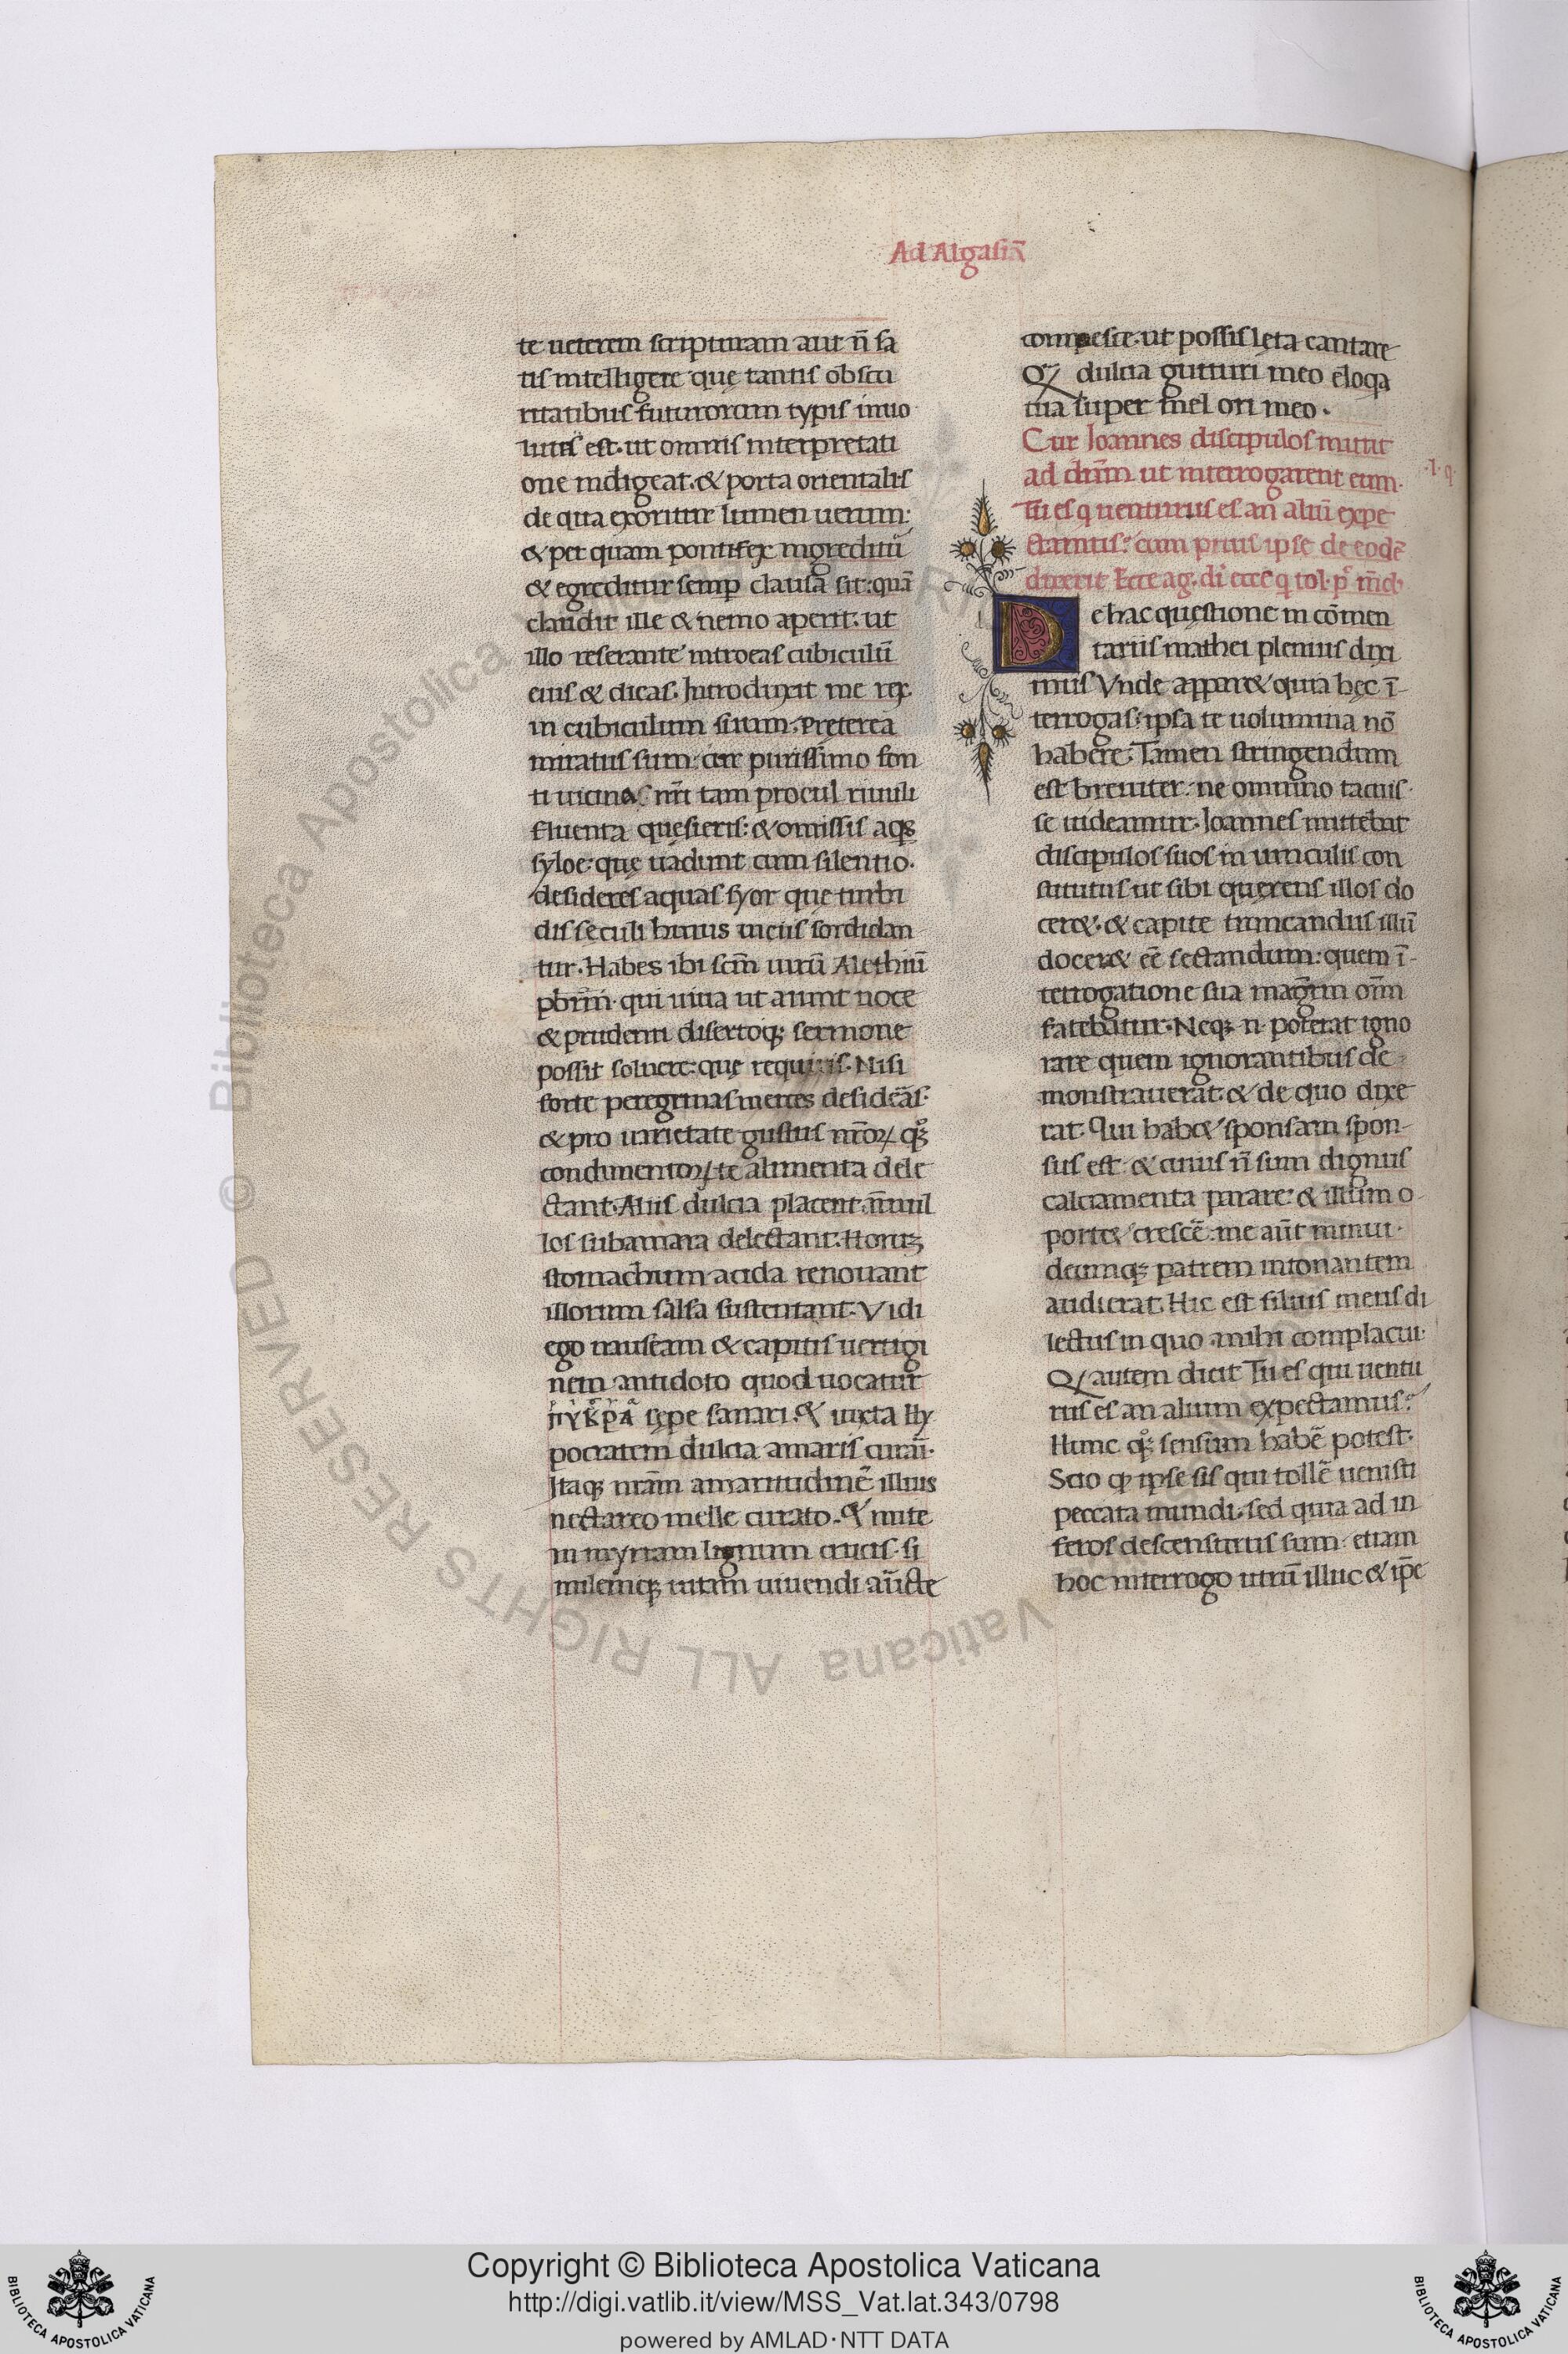 Ad Algasiā
te ueterem scripturam aut n̄ sa
tis intelligere que tantis obscu
ritatibus futurorum typis inuo
luta est. ut omnis interpretati
one indigeat. & porta orientalis
de qua exoritur lumen uerum:
& per quam pontifex ingreditū
& egreditur semp clausa sit: quā
claudit ille & nemo aperit. ut
illo reserante introeas cubiculū
eius & dicas. Introduxit me rex
in cubiculum suum. Pręterea
miratus sum: cur purissimo fon
ti uicina nr̄i tam procul riuuli
fluenta quęsieris: & omissis aqs
syloe: quę uadunt cum silentio.
desideres aquas syor que turbi
dis seculi huius uiciis sordidan
tur. Habes ibi scm̄ uirū Alethiū
pbrm̄. qui uiua ut aiunt uoce
& prudenti disertoq; sermone
possit soluere: quę requiris. Nisi
forte peregrinas merces desideās.
& pro uarietate gustus nr̄oꝝ qꝫ
condimentoꝝ te alimenta dele
ctant. Aliis dulcia placent. n̄nul
los subamara delectant. Horuꝫ
stomachum acida renouant
illorum salsa sustentant. Vidi
ego nauseam & capitis uertigi
nem antidoto quod uocatur
πγκρα sępe sanari. & iuxta Hy
pocratem dulcia amaris curāi.
Itaq; nr̄am amaritudinē illius
nectareo melle curato. & mitte
in myrram lignum crucis. si
milemq; uitam uiuendi aūcte
compesce. ut possis lęta cantare
Qꝫ dulcia gutturi meo eloqa
tua super mel ori meo.
Cur Ioannes discipulos mittit
ad dn̄m ut interrogarent eum.
.I. q.
Tu es q uenturus es an aliū expe
ctamus: cum prius ipse de eodē
dixerit Ecce ag. di ecce q tol. p̄ m̄di
De hac questione in cōmen
tariis mathei plenius dixi
mus Vnde appar& quia hęc ī-
terrogas: ipsa te uolumina nō
habere. Tamen stringendum
est breuiter. ne omnino tacuis
se uideamur. Ioannes mittebat
discipulos suos in uinculis con
stitutus ut sibi querens illos do
cer&. & capite truncandus illū
docer& eē sectandum: quem ī-
terrogatione sua magr̄m om̄
fatebatur. Neq; n poterat igno
rare quem ignorantibus de
monstrauerat. & de quo dixe
rat. Qui hab& sponsam spon-
sus est: & cuius n̄ sum dignus
calciamenta purare: & illum o-
port& crescē: me aūt minui.
deumq; patrem intonantem
audierat. Hic est filius meus di
lectus in quo mihi complacui.
Qꝫ autem dicit Tu es qui uentu
rus es an alium expectamus?
Hunc qꝫ sensum habē potest.
Scio qꝫ ipse sis qui tollē uenisti
peccata mundi. sed quia ad in
feros descensurus sum etiam
hoc interrogo utrū illuc & ip̄e
Copyright © Biblioteca Apostolica Vaticana
http://digi.vatlib.it/view/MSS_Vat.lat.343/0798
powered by AMLAD·NTT DATA
BIBLIOTECA APOSTOLICA VATICANA
BIBLIOTECA APOSTOLICA VATICANA
© Biblioteca Apostolica Vaticana ALL RIGHTS RESERVED